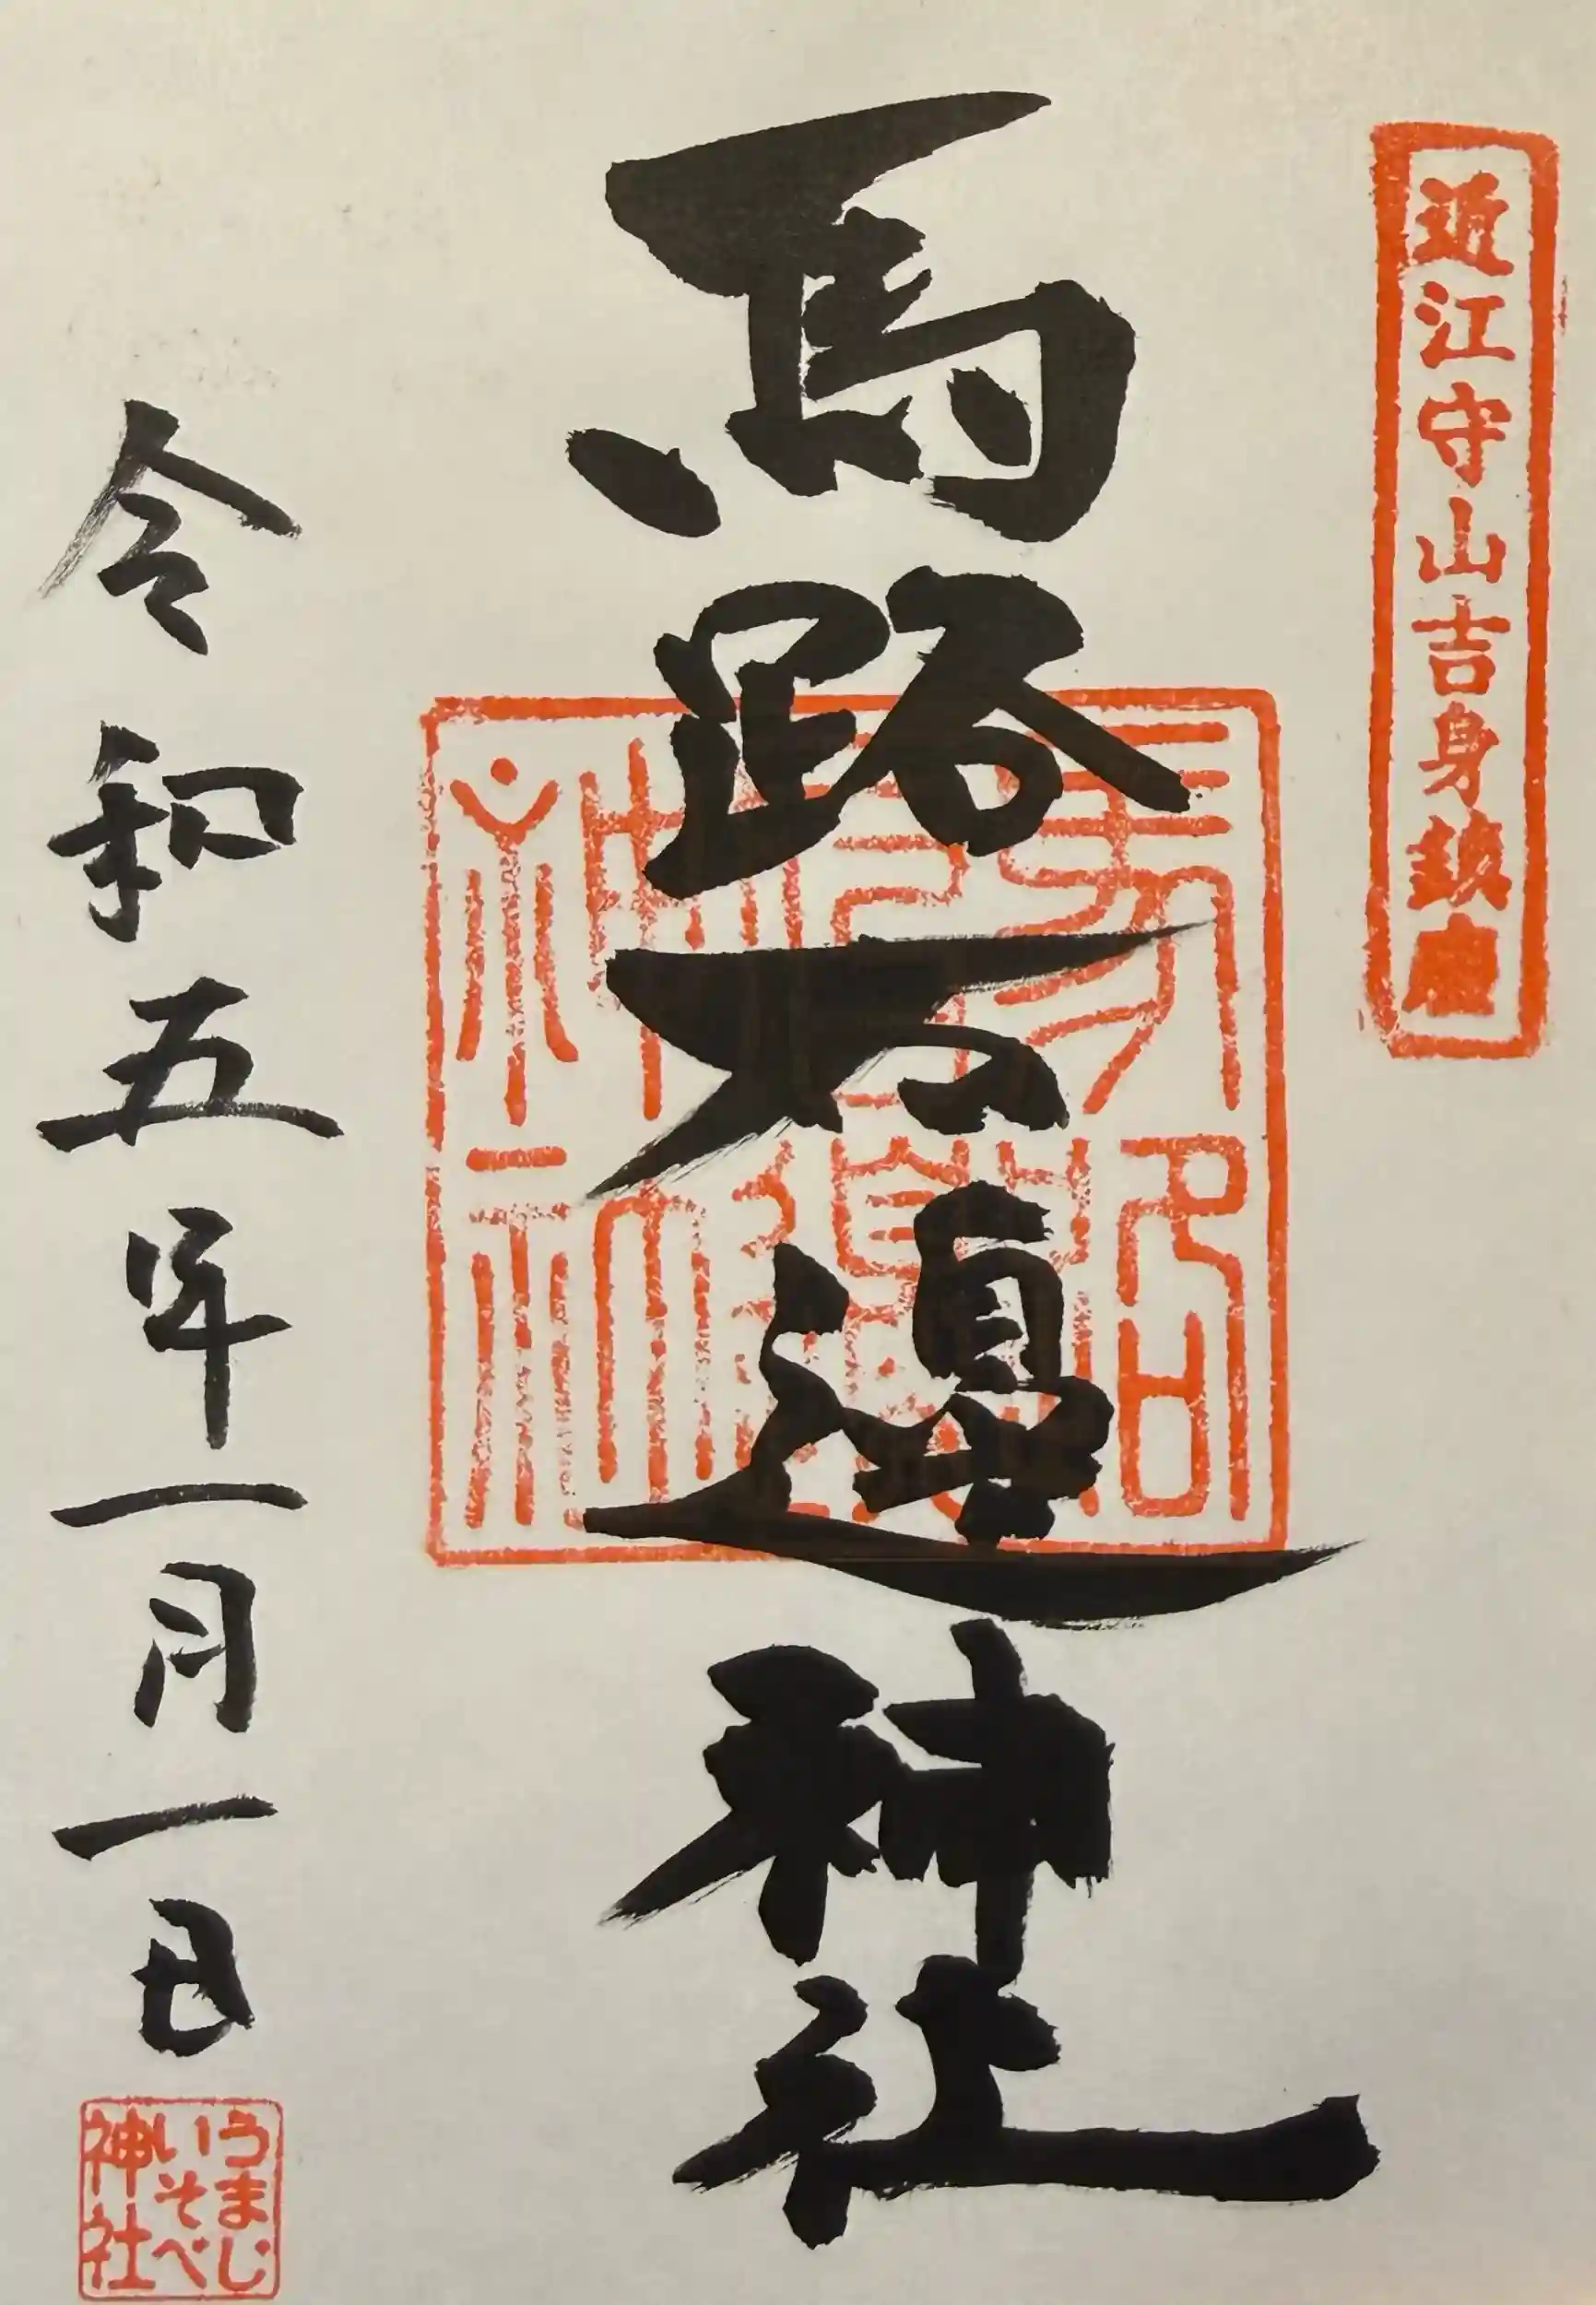 近江守山吉身鎮座
馬路石邊神社
馬路石邊神社
令和五年一月一日
うまじ
いそべ
神社